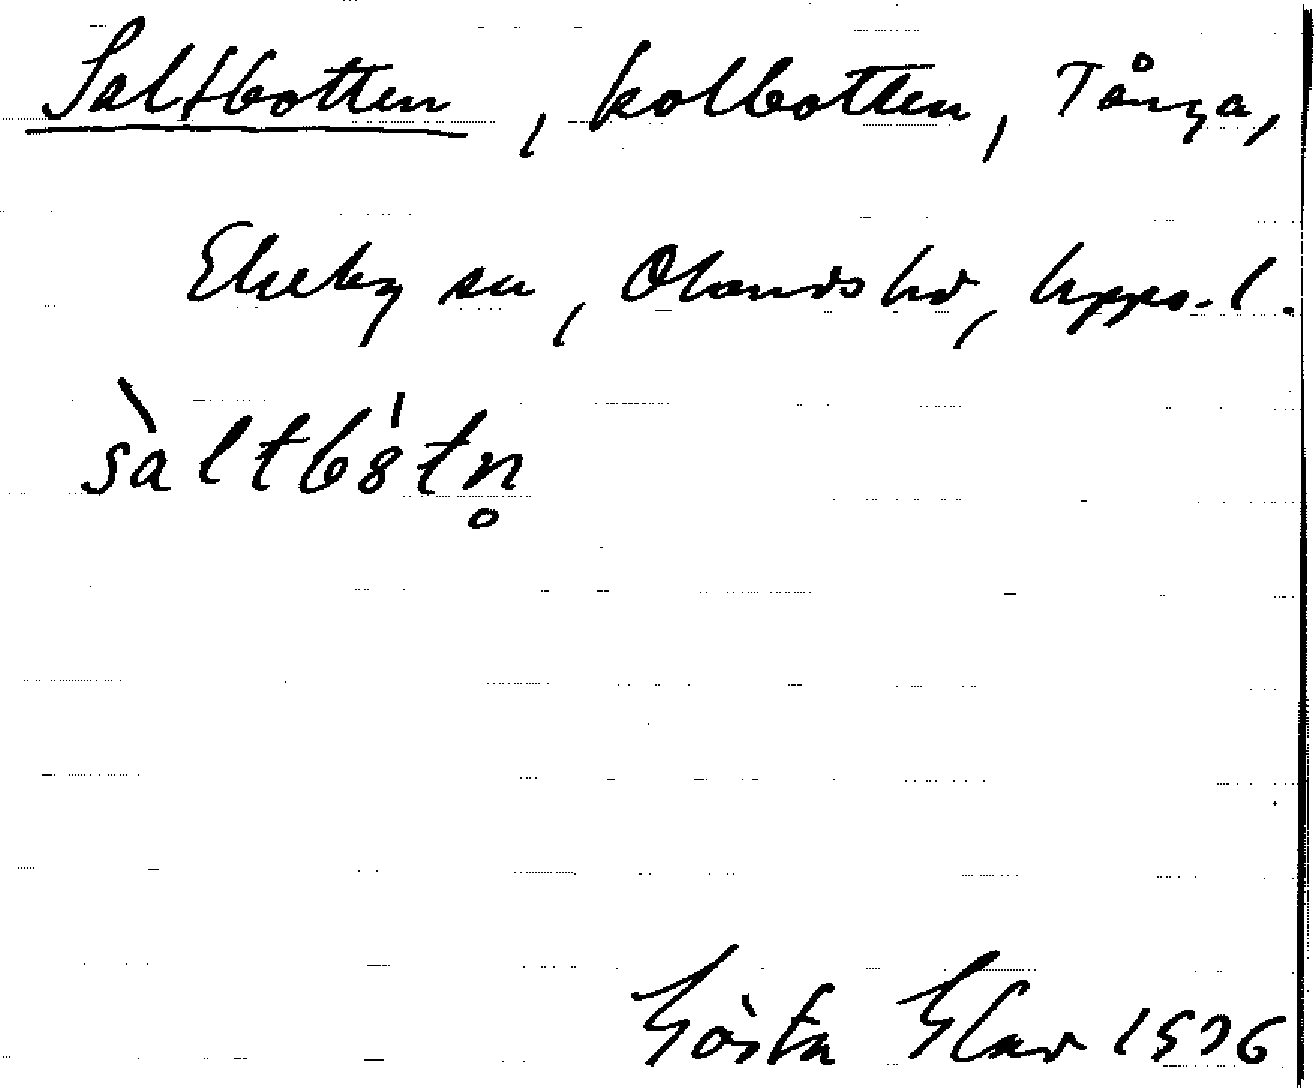 Saltbotten, kolbotten, Tånga,
Ekeby sn, Olands hd, Upps. l.
sàltbòtn̥
Gösta Glav 1976